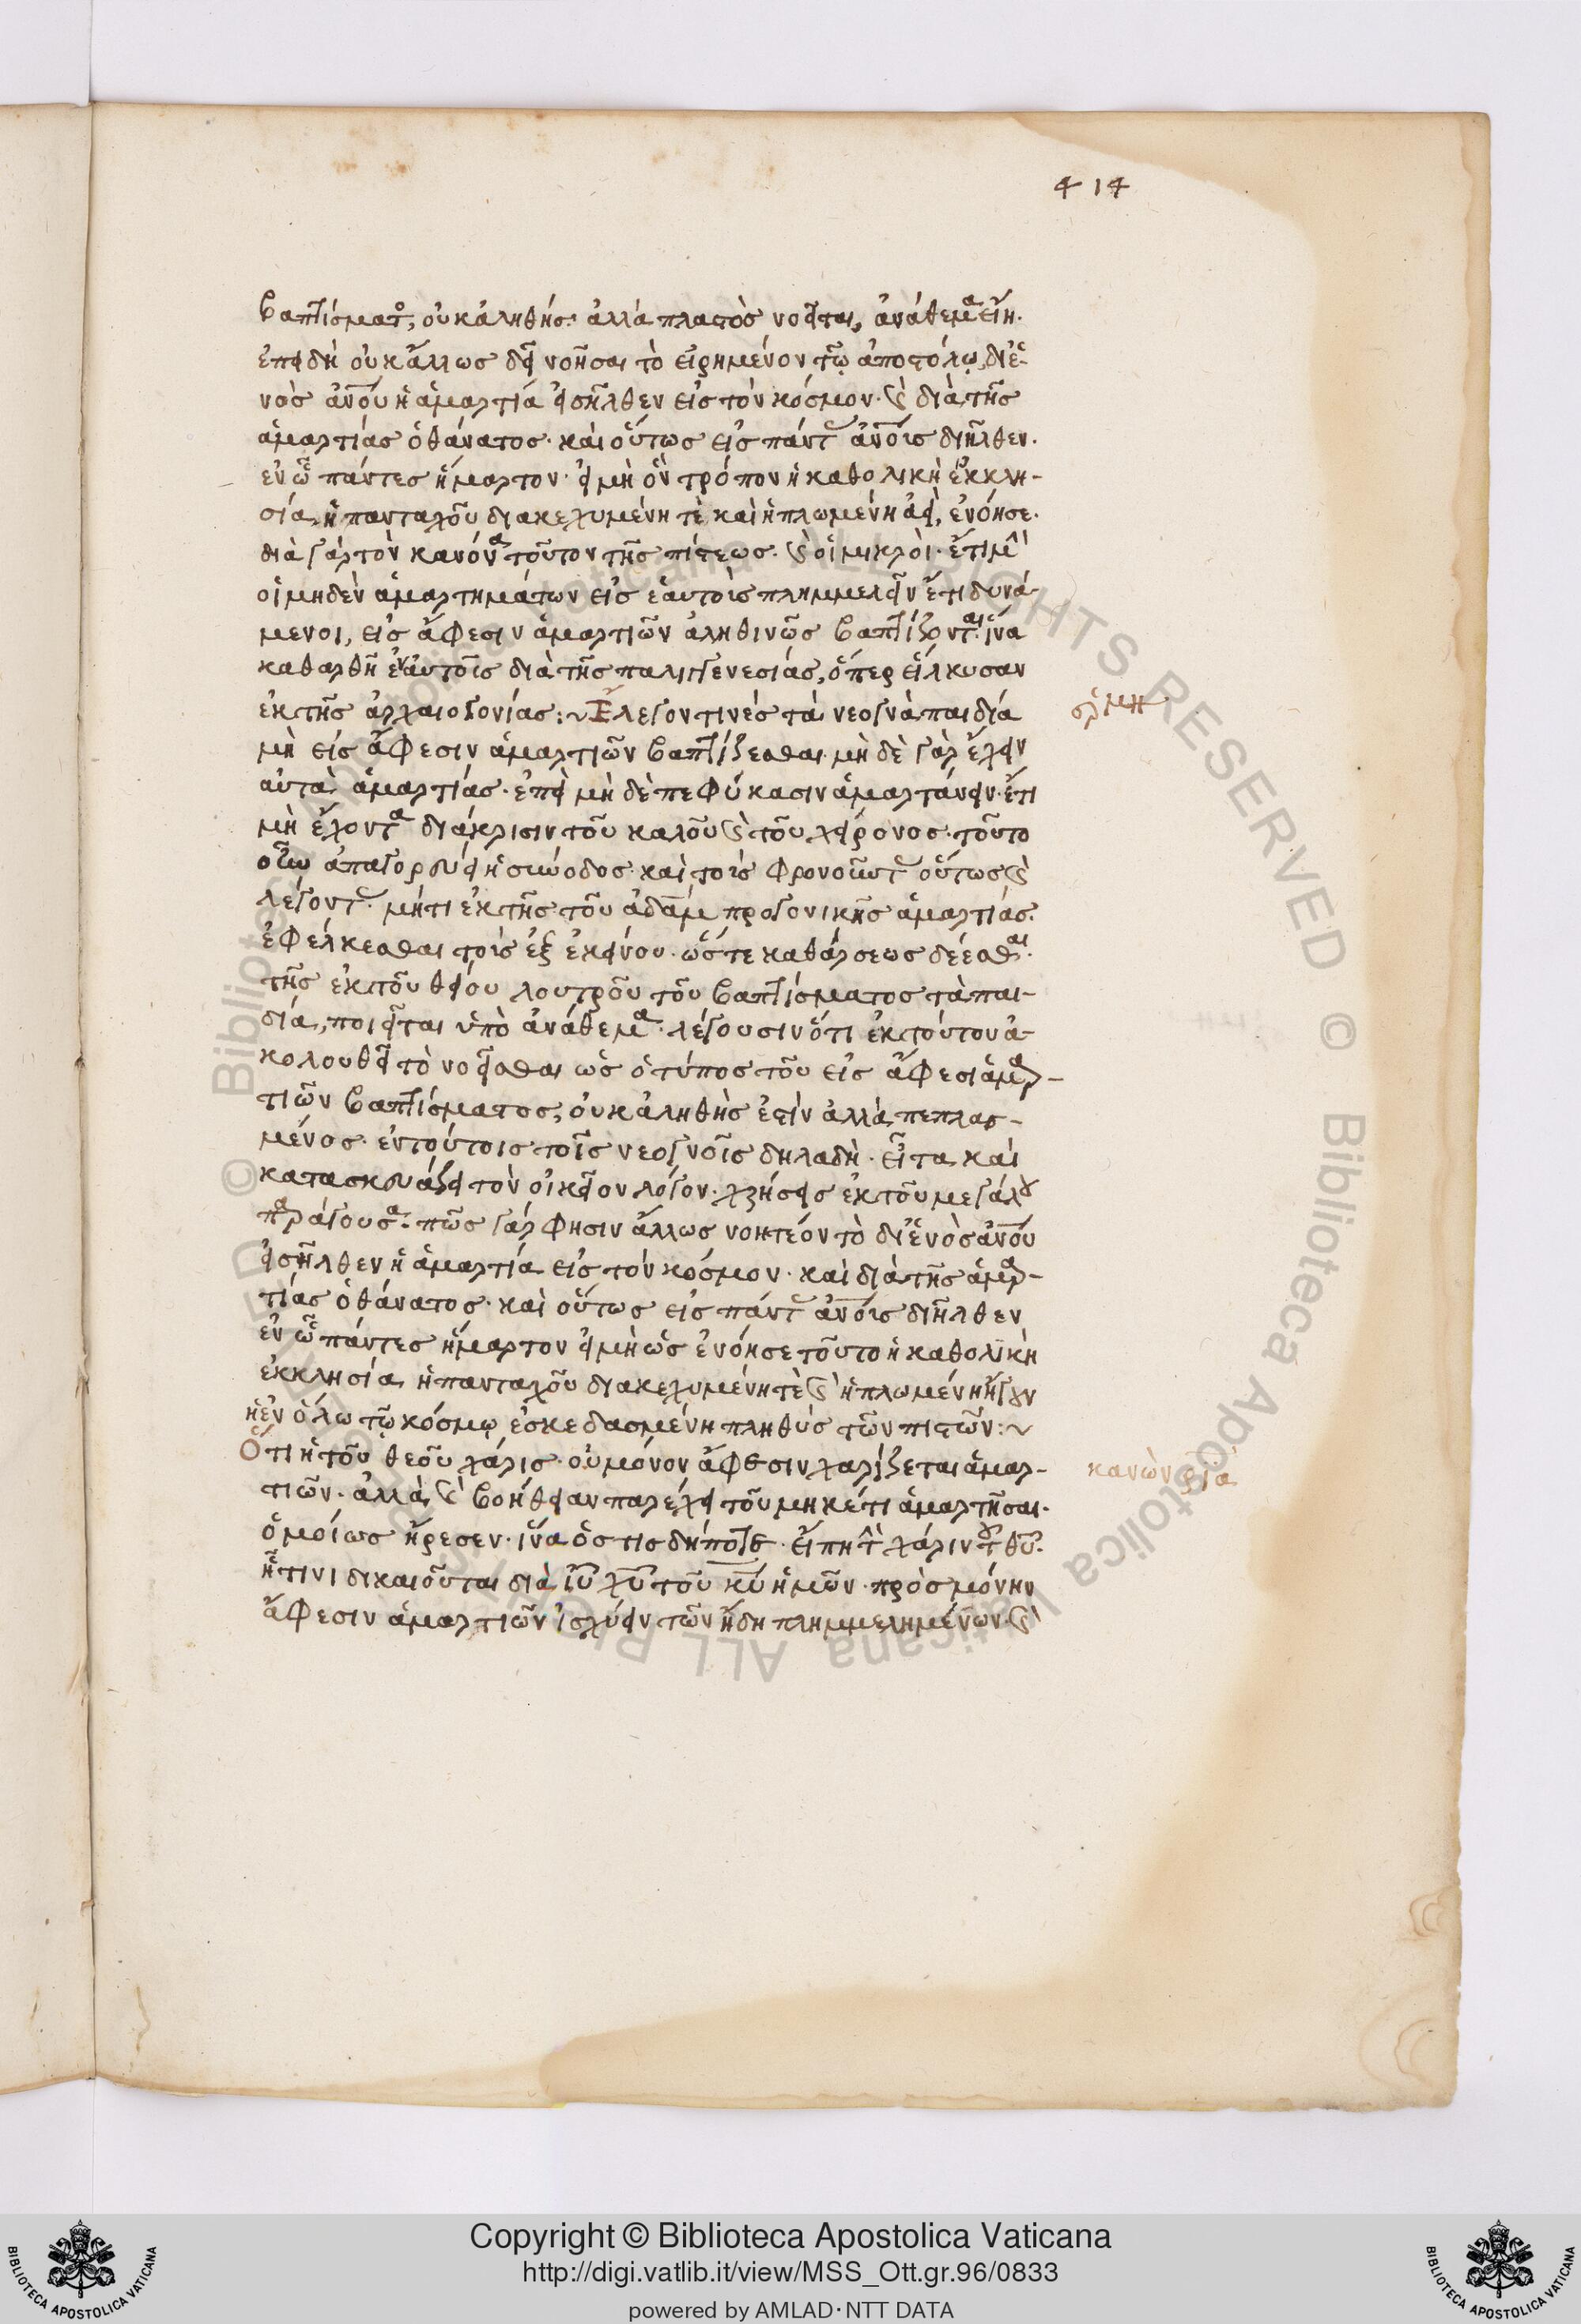 414
βαπτίσματος, οὐκ ἀληθής· ἀλλὰ πλαστὸς νοεῖται, ἀνάθεμα εἴη.
ἐπειδὴ οὐκ ἄλλως δεῖ νοῆσαι τὸ εἰρημένον τῷ ἀποστόλῳ, δι' ἑ-
νὸς ἀνου ἡ ἁμαρτία εἰσῆλθεν εἰς τὸν κόσμον· καὶ διὰ τῆς
ἁμαρτίας ὁ θάνατος· καὶ οὕτως εἰς πάντας ἀνοις διῆλθεν.
ἐν ᾧ πάντες ἥμαρτον· εἰ μὴ ὃν τρόπον ἡ καθολικὴ ἐκκλη-
σία, ἡ πανταχοῦ διακεχυμένη τὲ καὶ ἡπλωμένη ἀεὶ, ἐνόησε.
διὰ γὰρ τὸν κανόνα τοῦτον τῆς πίστεως· καὶ οἱ μικροὶ· ἔτι μὴ
οἱ μηδὲν ἁμαρτημάτων εἰς ἑαυτοὺς πλημμελεῖν ἔτι δυνά-
μενοι, εἰς ἄφεσιν ἁμαρτιῶν ἀληθινῶς βαπτίζονται· ἵνα
καθαρθῆ ἐν αὐτοῖς διὰ τῆς παλιγγενεσίας, ὅπερ εἵλκυσαν
ἐκ τῆς ἀρχαιογονίας :~ Ἔλεγον τινὲς τὰ νεογνὰ παιδία
μὴ εἰς ἄφεσιν ἁμαρτιῶν βαπτίζεσθαι· μὴ δὲ γὰρ ἔχειν
αὐτὰ ἁμαρτίας· ἐπεὶ μὴ δὲ πεφύκασιν ἁμαρτάνειν· ἔτι
μὴ ἔχοντα διάκρισιν τοῦ καλοῦ καὶ τοῦ χείρονος· τοῦτο
οὖν ἀπαγορεύει ἡ σύνοδος· καὶ τοὺς φρονοῦντας οὕτως καὶ
λέγοντας· μήτι ἐκ τῆς τοῦ ἀδὰμ προγονικῆς ἁμαρτίας.
ἐφέλκεσθαι τοὺς ἐξ ἐκείνου· ὥστε καθάρσεως δέεσθαι.
τῆς ἐκ τοῦ θείου λουτροῦ τοῦ βαπτίσματος τὰ παι-
δία, ποιεῖται ὑπὸ ἀνάθεμα· λέγουσιν ὅτι ἐκ τούτου ἀ-
κολουθεῖ τὸ νοεῖσθαι ὡς ὁ τύπος τοῦ εἰς ἄφεσι ἁμαρ-
τιῶν βαπτίσματος, οὐκ ἀληθὴς ἐστὶν ἀλλὰ πεπλασ-
μένος· ἐν τούτοις τοῖς νεογνοῖς δηλαδὴ· εἶτα καὶ
κατασκευάζει τὸν οἰκεῖον λόγον· χρήσεις ἐκ τοῦ μεγάλου
παράγουσα· πῶς γάρ φησιν ἄλλως νοητέον τὸ δι' ἑνὸς ἀνου
εἰσῆλθεν ἡ ἁμαρτία εἰς τὸν κόσμον· καὶ διὰ τῆς ἁμαρ-
τίας ὁ θάνατος· καὶ οὕτως εἰς πάντας ἀνοις διῆλθεν
ἐν ᾧ πάντες ἥμαρτον εἰ μὴ ὡς ἐνόησε τοῦτο ἡ καθολικὴ
ἐκκλησία ἡ πανταχοῦ διακεχυμένη τὲ καὶ ἡπλωμένη ἤγουν
ἡ ἐν ὅλω τῷ κόσμῳ ἐσκεδασμένη πληθὺς τῶν πιστῶν :~
Ὅτι ἡ τοῦ θεοῦ χάρις· οὐ μόνον ἄφεσιν χαρίζεται ἁμαρ-
κανὼν ριά
τιῶν· ἀλλὰ καὶ βοήθειαν παρέχει τοῦ μηκέτι ἁμαρτῆσαι.
ὁμοίως ἤρεσεν· ἵνα ὅς τις δήποτε· εἴπη τὴν χάριν τοῦ θυ.
ᾗτινι δικαιοῦται διὰ ἰυ χυ τοῦ κυ ἡμῶν· πρὸς μόνην
ἄφεσιν ἁμαρτιῶν ἰσχύειν τῶν ἤδη πλημμελημένων· καὶ
Copyright © Biblioteca Apostolica Vaticana
http://digi.vatlib.it/view/MSS_Ott.gr.96/0833
powered by AMLAD·NTT DATA